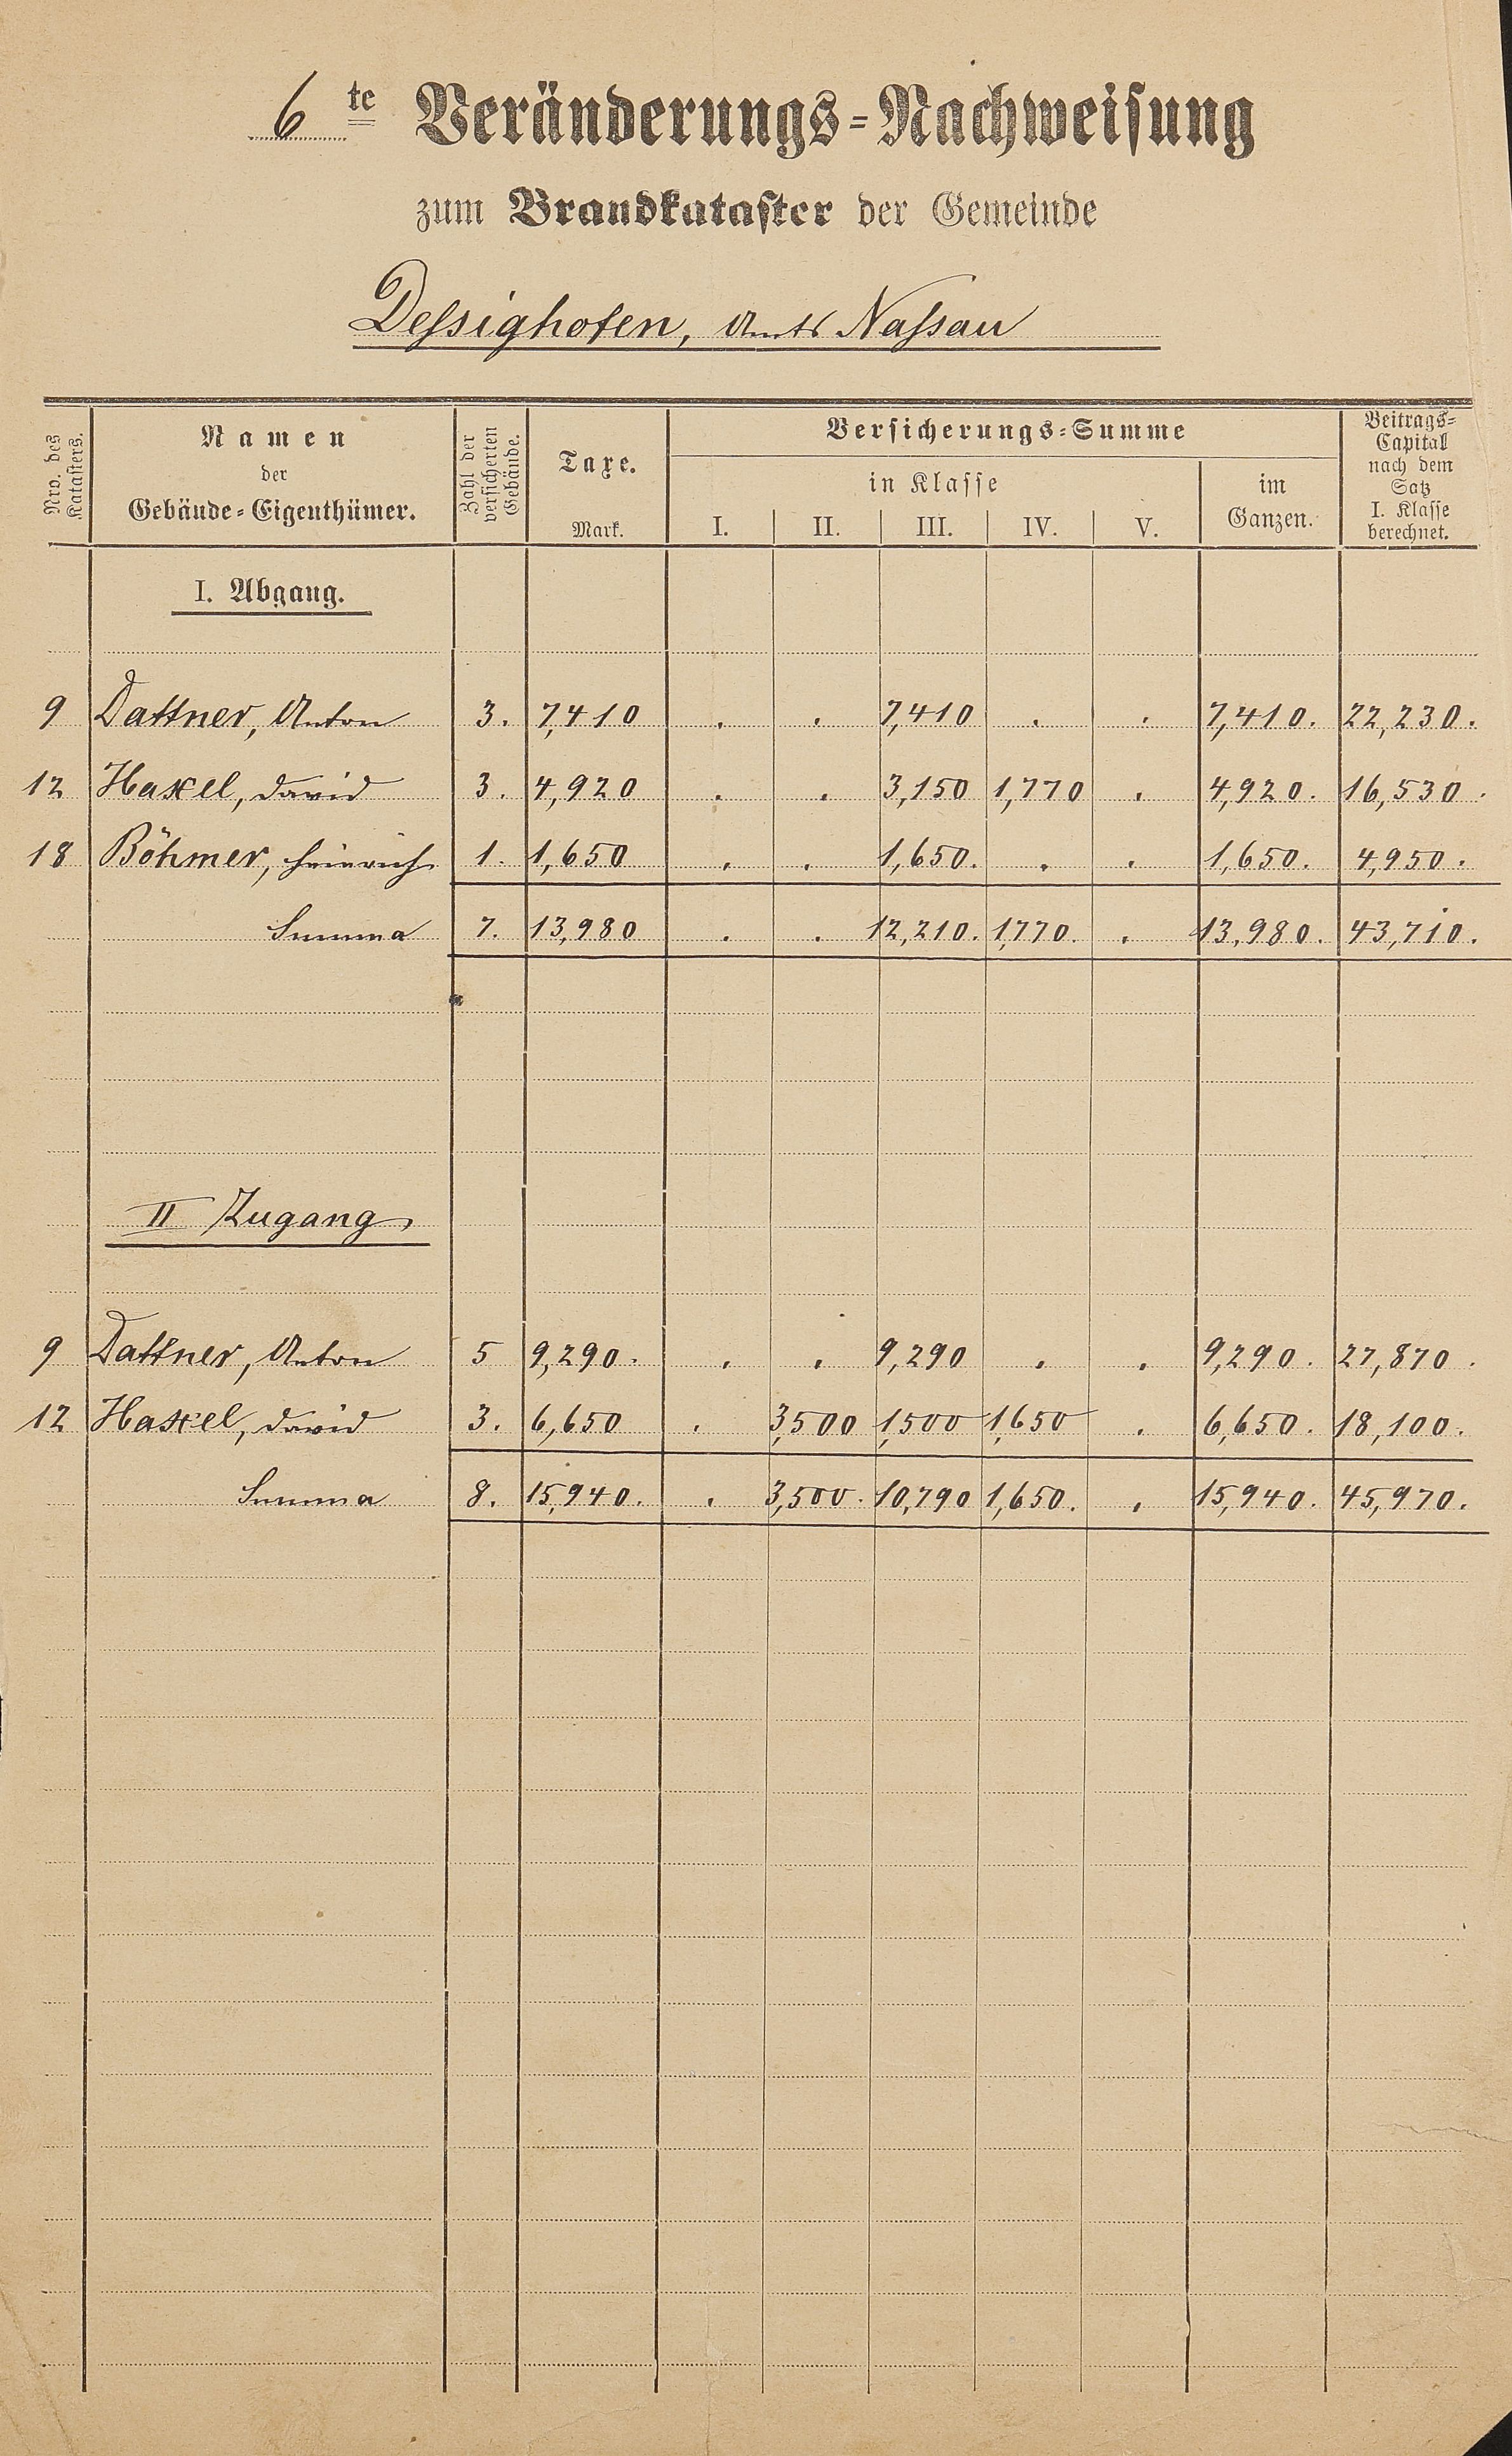 6 te Veränderungs-Nachweisung
zum Brandkataster der Gemeinde
Dessighofen, Amts Nassau
Nro. des Katasters.
Namen
der
Gebäude-Eigenthümer.
Zahl der versicherten Gebäude.
Taxe.
Mark.
Versicherungs-Summe
in Klasse
I. II. III. IV. V.
im
Ganzen.
Beitrags-
Capital
nach dem
Satz
I. Klasse
berechnet.
I. Abgang.
9 Dattner, Anton 3. 7,410 . . 7,410 . . 7,410. 22,230.
12 Haxel, David 3. 4,920 . . 3,150 1,770 . 4,920. 16,530.
18 Böhmer, Heinrich 1. 1,650 . . 1,650. . . 1,650. 4,950.
Summa 7. 13,980 . . 12,210. 1,770. . 13,980. 43,710.
II Zugang
9 Dattner, Anton 5 9,290. . . 9,290 . . 9,290. 27,870.
12 Haxel, David 3. 6,650 . 3,500 1,500 1,650 . 6,650. 18,100.
Summa 8. 15,940. . 3,500. 10,790 1,650. . 15,940. 45,970.